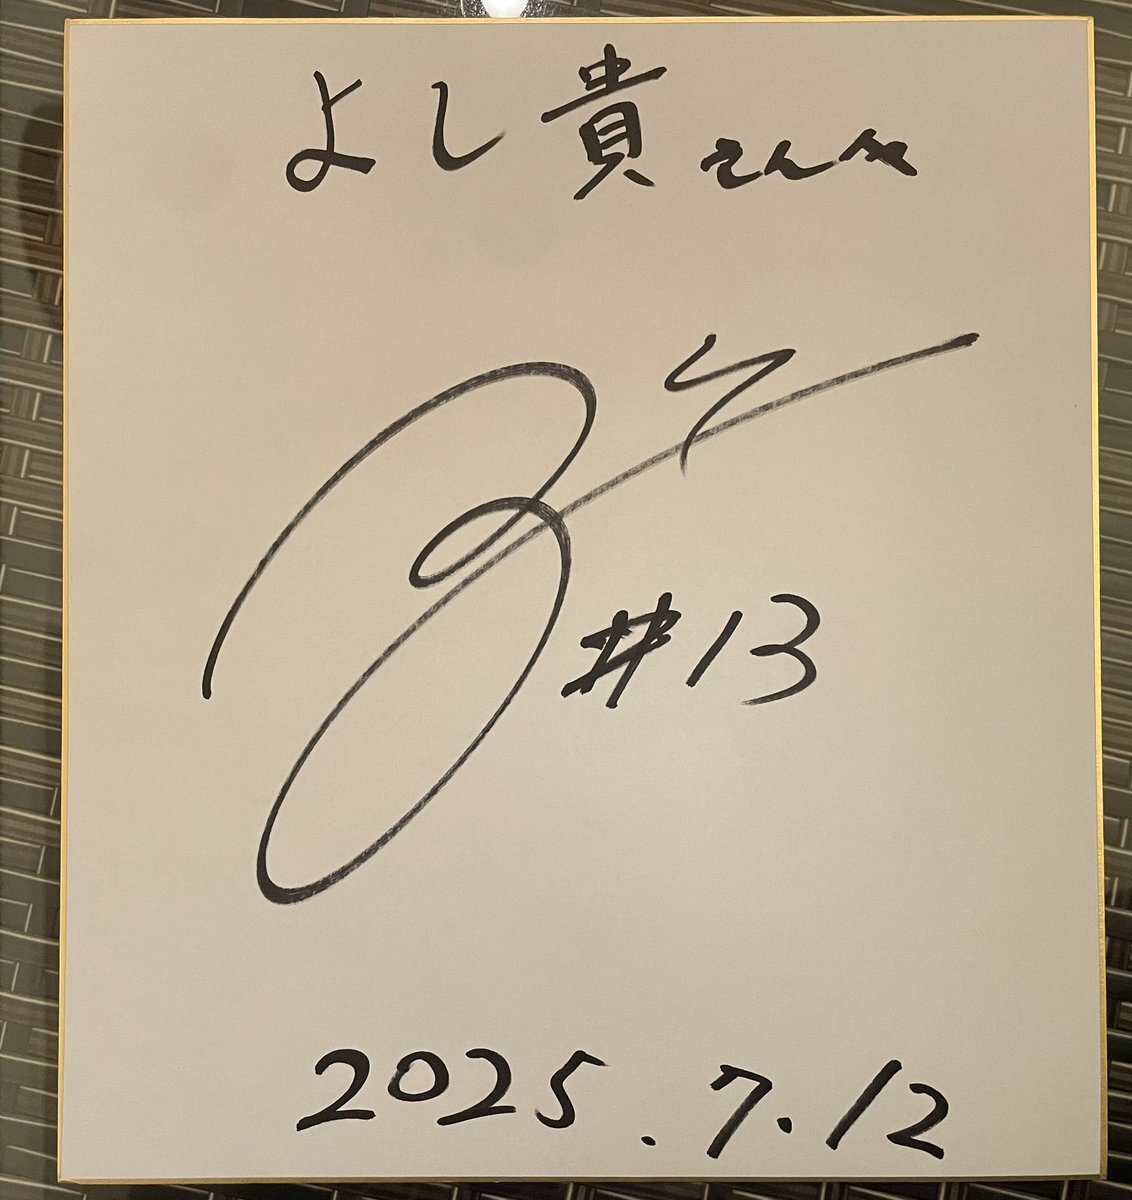 よし貴さんへ
#13
2025.7.12